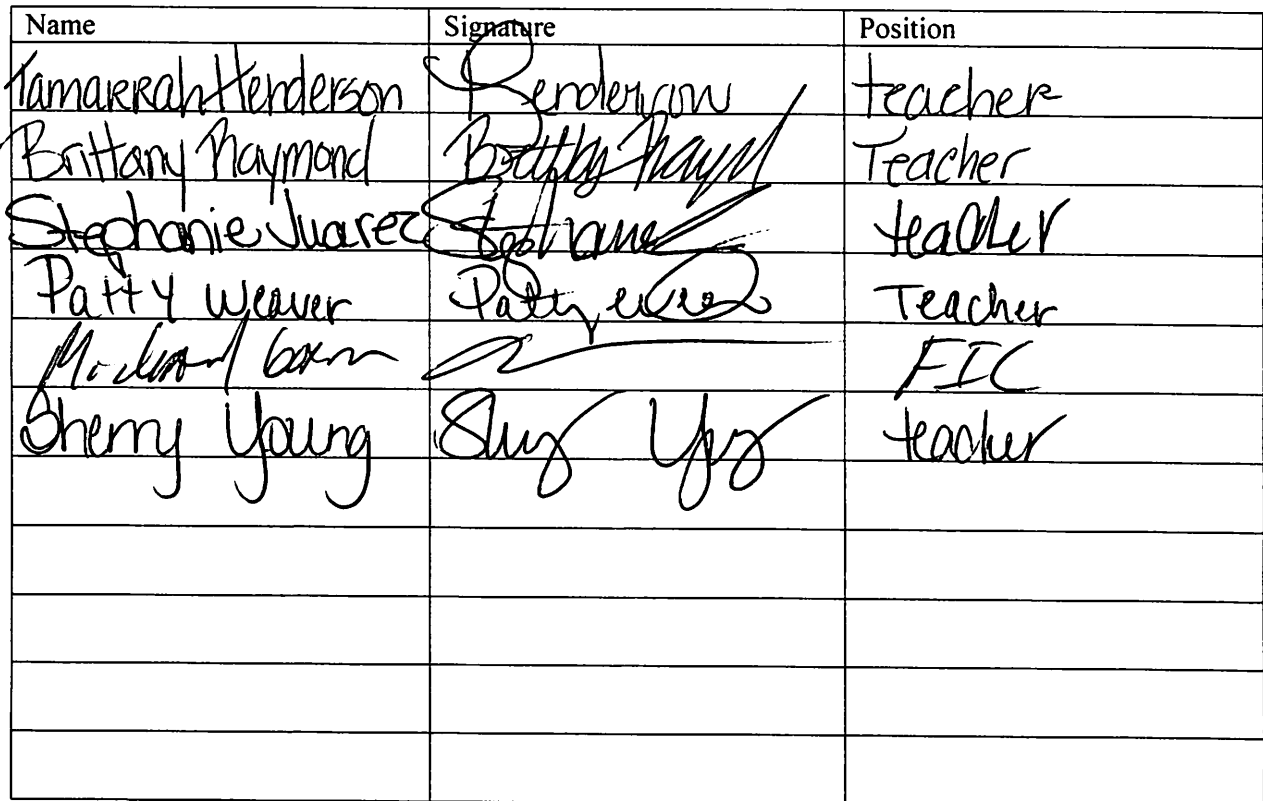 Name Signature Position
Tamarrah Henderson Henderson teacher
Brittany Raymond Brittany Raymond Teacher
Stephanie Juarez Stephanie teacher
Patty Weaver Patty Teacher
FIC
Sherry Young teacher